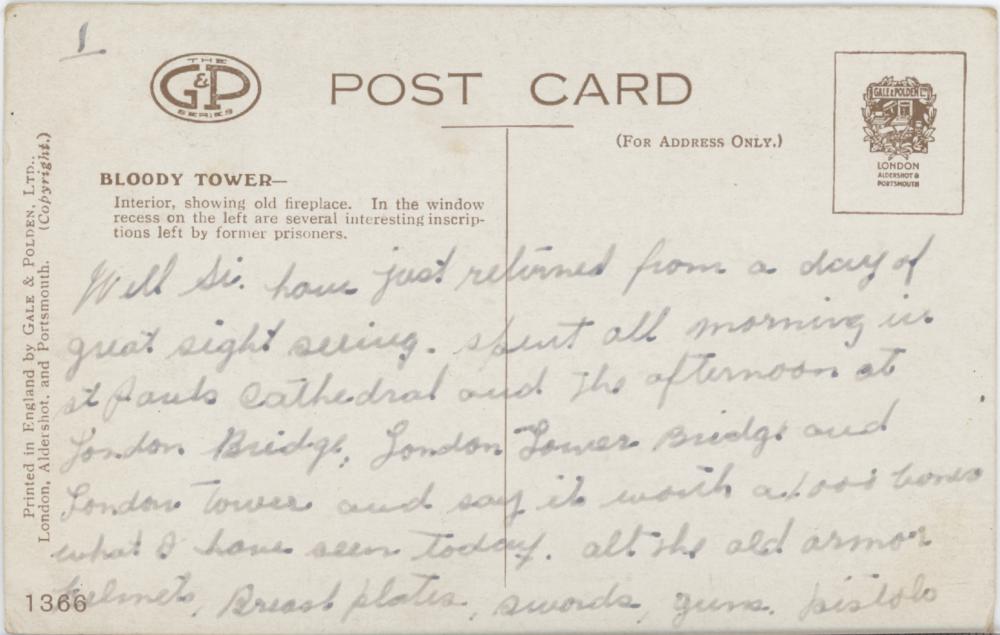 1
THE
G&P
SERIES
POST CARD
(FOR ADDRESS ONLY.)
GALE & POLDEN LTD
LONDON
ALDERSHOT &
PORTSMOUTH
BLOODY TOWER—
Interior, showing old fireplace. In the window
recess on the left are several interesting inscrip-
tions left by former prisoners.
Printed in England by GALE & POLDEN, LTD.,
London, Aldershot, and Portsmouth. (Copyright.)
Well Si. have just returned from a day of
great sight seeing. spent all morning in
st Pauls Cathedral and the afternoon at
London Bridge, London Tower Bridge and
London Tower and say it worth a 1000 bones
what I have seen today. all the old armor
Helmets, Breast plates, swords, guns, pistols
1366